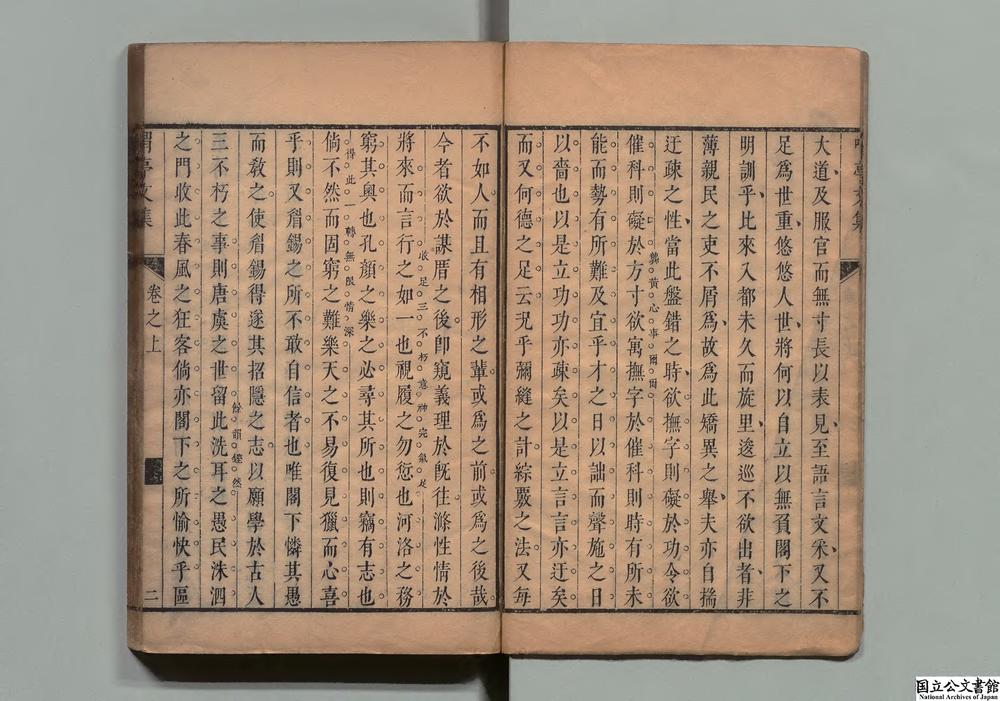 大道及服官而無寸長以表見至語言文采又不
足爲世重悠悠人世將何以自立以無負閣下之
明訓乎比來入都未久而旋里逡巡不欲出者非
薄親民之吏不屑爲故爲此矯異之舉夫亦自揣
迂疎之性當此盤錯之時欲撫字則礙於功令欲
龔黃心事爾爾
催科則礙於方寸欲寓撫字於催科則時有所未
能而勢有所難及宜乎才之日以詘而聲施之日
以嗇也以是立功功亦疎矣以是立言言亦迂矣
而又何德之足云况乎彌縫之計綜覈之法又每
不如人而且有相形之輩或爲之前或爲之後哉
今者欲於謀厝之後卽窺義理於旣往滌性情於
收足三不朽意神完氣足
將來而言行之如一也視履之勿愆也河洛之務
窮其奥也孔顔之樂之必尋其所也則竊有志也
得此一轉無限情深
倘不然而固窮之難樂天之不易復見獵而心喜
乎則又眉錫之所不敢自信者也唯閣下憐其愚
而敎之使眉錫得遂其招隱之志以願學於古人
三不朽之事則唐虞之世留此洗耳之愚民洙泗
餘韻鏗然
之門收此春風之狂客倘亦閣下之所愉快乎區
卷之上
二
国立公文書館
National Archives of Japan